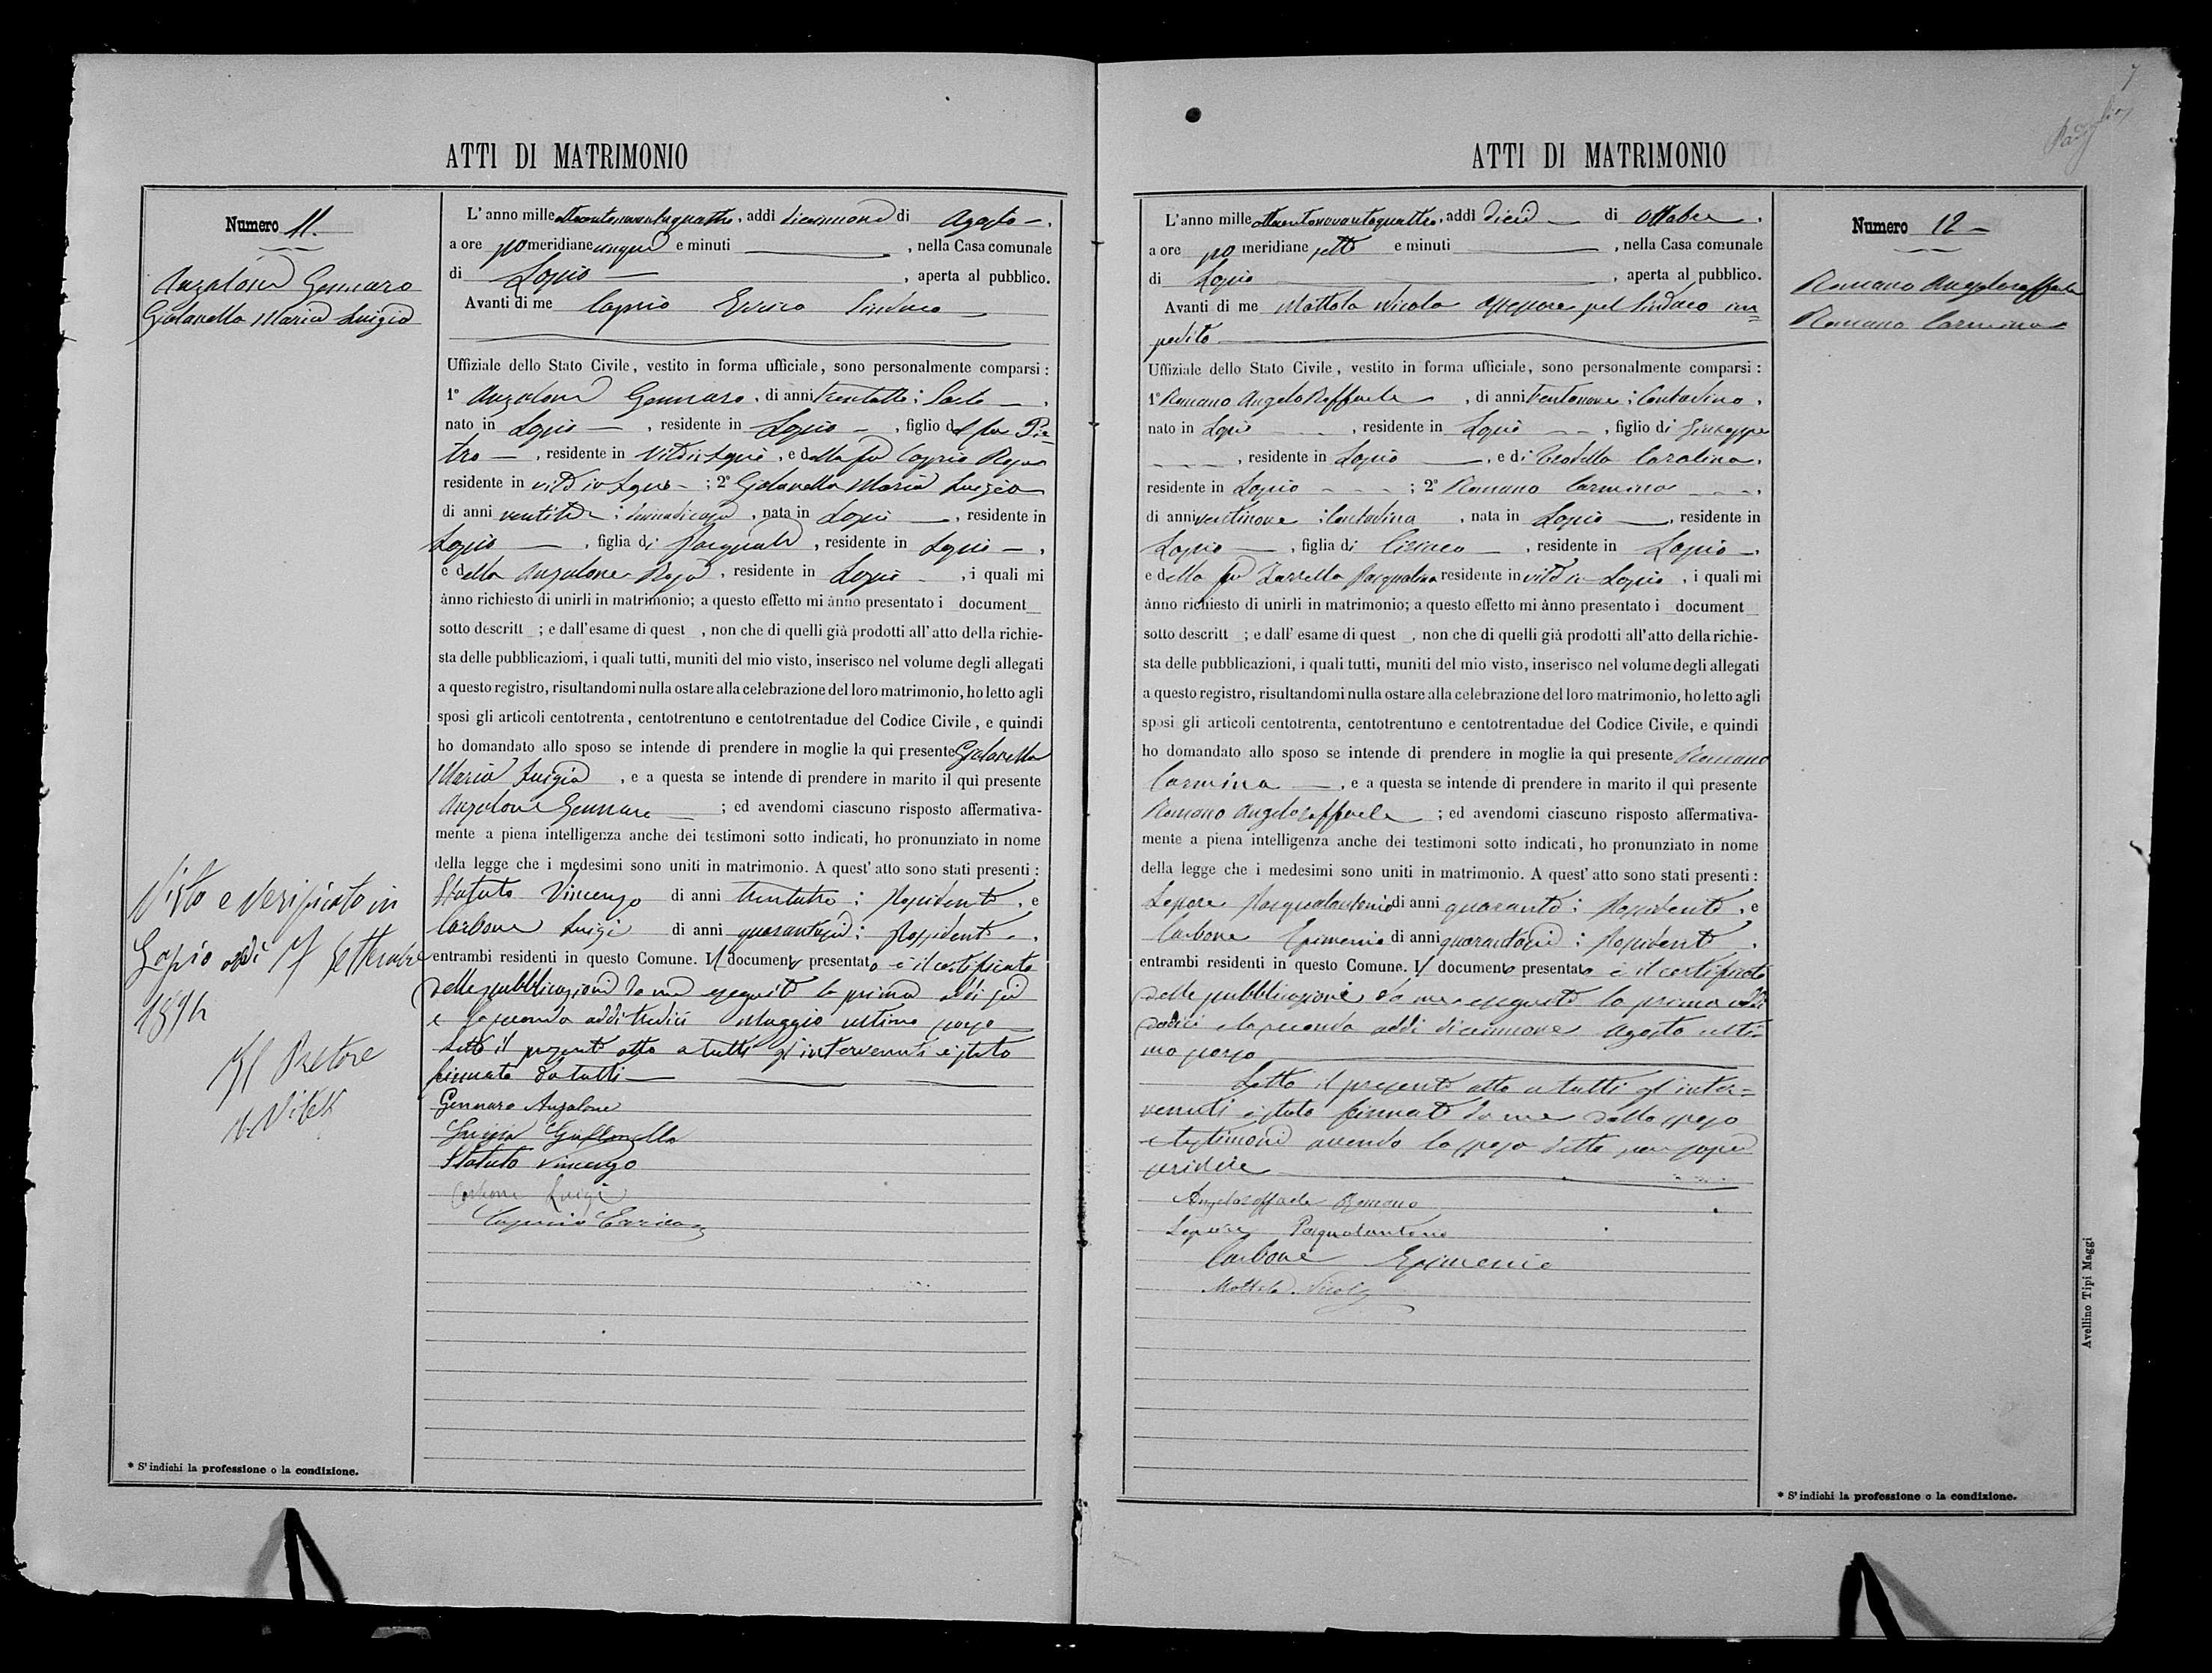 ATTI DI MATRIMONIO
Numero 11.
Anzalone Gennaro
Galanella Maria Luigia
L'anno mille ottocentonovantaquattro, addì diciannove di Agosto
a ore po meridiane cinque e minuti , nella Casa comunale
di Lapio , aperta al pubblico.
Avanti di me Caprio Errico Sindaco
Uffiziale dello Stato Civile, vestito in forma ufficiale, sono personalmente comparsi:
1° Anzalone Gennaro, di anni trentotto; Sarto ,
nato in Lapio , residente in Lapio , figlio del fu Pie-
tro , residente in vita in Lapio, e della fu Caprio Rosa
residente in vita in Lapio ; 2° Galanella Maria Luigia
di anni ventitre ; , nata in Lapio , residente in
Lapio , figlia di Pasquale , residente in Lapio ,
e della Anzalone Rosa , residente in Lapio , i quali mi
ànno richiesto di unirli in matrimonio; a questo effetto mi ànno presentato i document
sotto descritt ; e dall'esame di quest , non che di quelli già prodotti all'atto della richie-
sta delle pubblicazioni, i quali tutti, muniti del mio visto, inserisco nel volume degli allegati
a questo registro, risultandomi nulla ostare alla celebrazione del loro matrimonio, ho letto agli
sposi gli articoli centotrenta, centotrentuno e centotrentadue del Codice Civile, e quindi
ho domandato allo sposo se intende di prendere in moglie la qui presente Galanella
Maria Luigia , e a questa se intende di prendere in marito il qui presente
Anzalone Gennaro ; ed avendomi ciascuno risposto affermativa-
mente a piena intelligenza anche dei testimoni sotto indicati, ho pronunziato in nome
della legge che i medesimi sono uniti in matrimonio. A quest'atto sono stati presenti:
Statuto Vincenzo di anni trentatre; Possidente, e
Carbone Luigi di anni quarantasei; Possidente,
entrambi residenti in questo Comune. Il documento presentato è il certificato
delle pubblicazioni da me eseguite la prima addì sei
e la seconda addì tredici Maggio ultimo scorso
Letto il presente atto a tutti gl'intervenuti è stato
firmato da tutti
Gennaro Anzalone
Luigia
Statuto Vincenzo
Carbone Luigi
Caprio Errico
Visto e verificato in
Lapio addì 17 Settembre
1894
Il Pretore
* S'indichi la professione o la condizione.
7
ATTI DI MATRIMONIO
Numero 12
Romano Angeloraffaele
Romano Carmina
L'anno mille ottocentonovantaquattro, addì dieci di Ottobre ,
a ore po meridiane sette e minuti , nella Casa comunale
di Lapio , aperta al pubblico.
Avanti di me Mottola Nicola Assessore pel Sindaco im=
pedito
Uffiziale dello Stato Civile, vestito in forma ufficiale, sono personalmente comparsi:
1° Romano Angelo Raffaele , di anni trentanove; Contadino,
nato in Lapio , residente in Lapio , figlio di Giuseppe
, residente in Lapio , e di Carolina,
residente in Lapio ; 2° Romano Carmina ,
di anni ventinove ; Contadina , nata in Lapio , residente in
Lapio , figlia di Ciriaco , residente in Lapio ,
e della fu Zarrella Pasqualina residente in vita in Lapio , i quali mi
ànno richiesto di unirli in matrimonio; a questo effetto mi ànno presentato i document
sotto descritt ; e dall'esame di quest , non che di quelli già prodotti all'atto della richie-
sta delle pubblicazioni, i quali tutti, muniti del mio visto, inserisco nel volume degli allegati
a questo registro, risultandomi nulla ostare alla celebrazione del loro matrimonio, ho letto agli
sposi gli articoli centotrenta, centotrentuno e centotrentadue del Codice Civile, e quindi
ho domandato allo sposo se intende di prendere in moglie la qui presente Romano
Carmina , e a questa se intende di prendere in marito il qui presente
Romano Angeloraffaele ; ed avendomi ciascuno risposto affermativa-
mente a piena intelligenza anche dei testimoni sotto indicati, ho pronunziato in nome
della legge che i medesimi sono uniti in matrimonio. A quest'atto sono stati presenti:
Lepore Pasqualantonio di anni quaranta; Possidente, e
Carbone Epimenio di anni quarantasei; Possidente,
entrambi residenti in questo Comune. Il documento presentato è il certificato
delle pubblicazioni da me eseguite la prima addì
dodici e la seconda addì diciannove Agosto ulti=
mo scorso
Letto il presente atto a tutti gl'inter=
venuti è stato firmato da me dallo sposo
e testimoni avendo la sposa detto non sapere
scrivere
Angeloraffaele Romano
Lepore Pasqualantonio
Carbone Epimenio
Mottola Nicola
Avellino Tipi Maggi
* S'indichi la professione o la condizione.